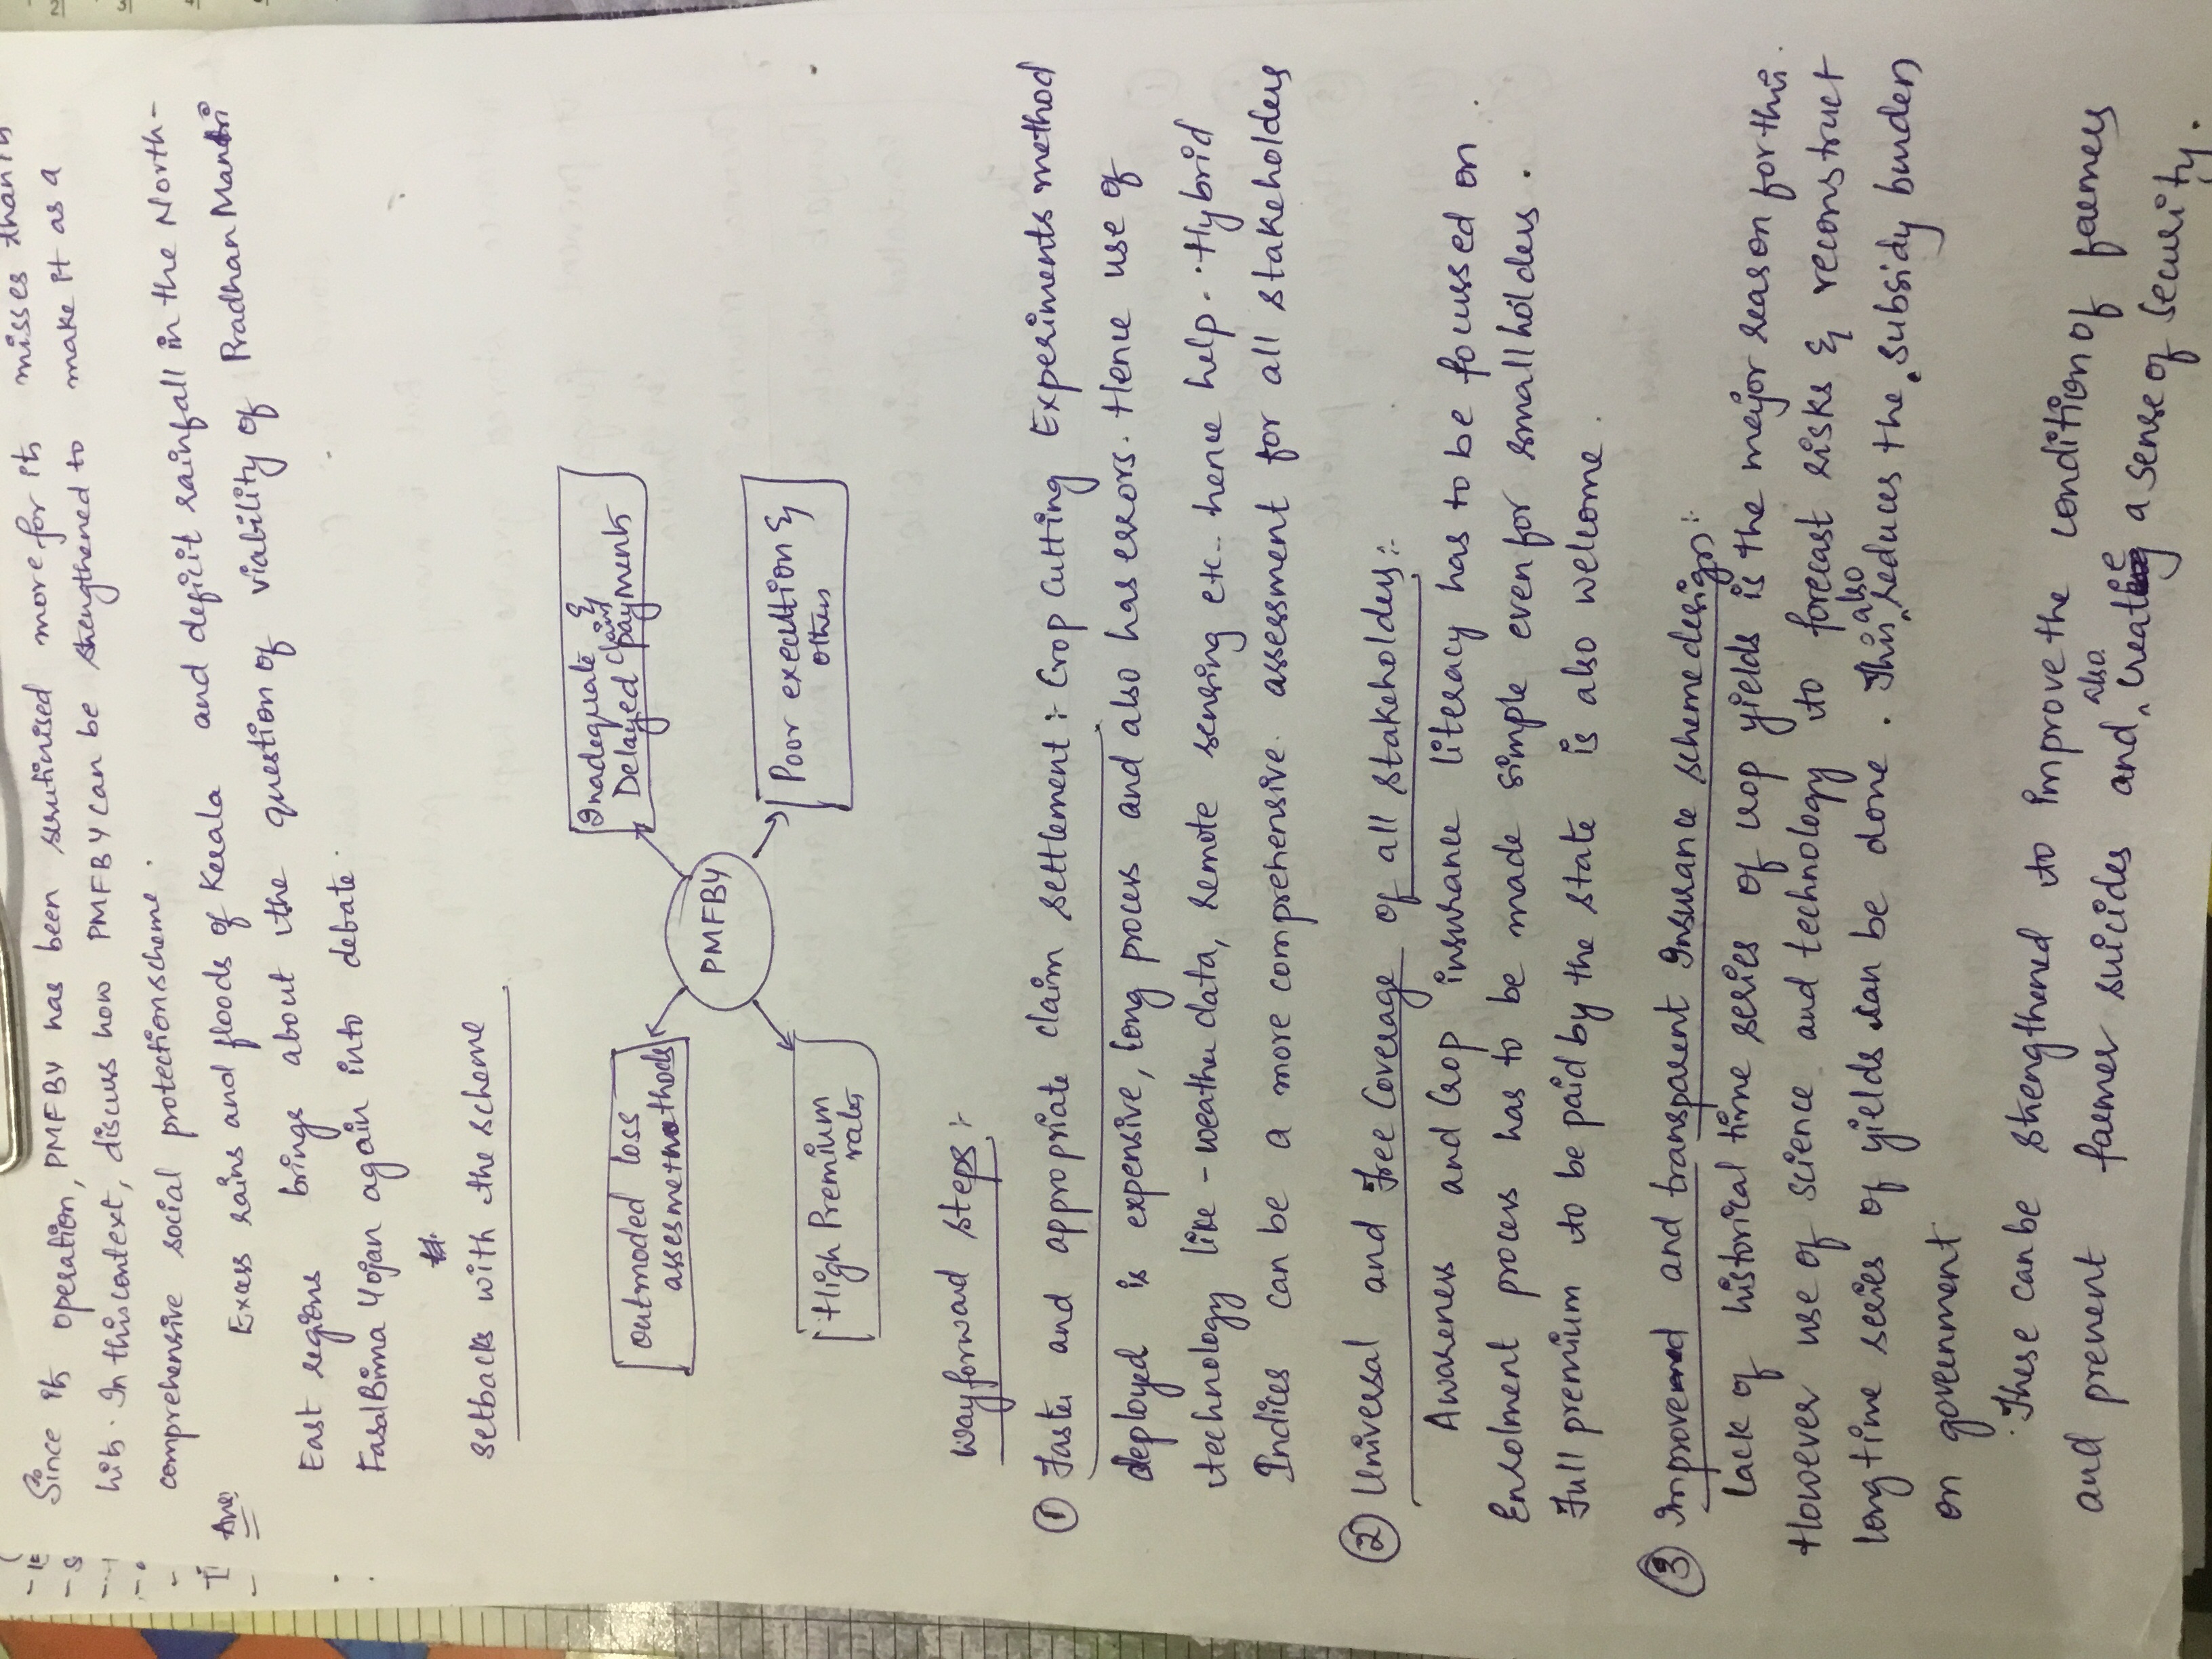 Since its operation, PMFBY has been scrutinised more for its misses than its
hits. In this context, discuss how PMFBY can be strengthened to make it as a
comprehensive social protection scheme.
Ans Excess rains and floods of Kerala and deficit rainfall in the North-
East regions brings about the question of viability of Pradhan Mantri
Fasal Bima Yojan again into debate.
Setbacks with the scheme
Outmoded loss
assesment methods
Inadequate &
Delayed claim
payments
PMFBY
High Premium
rates
Poor execution &
others
Way forward steps:-
① Faster and appropriate claim settlement:- Crop Cutting Experiments method
deployed is expensive, long process and also has errors. Hence use of
technology like - weather data, remote sensing etc.. hence help. Hybrid
Indices can be a more comprehensive assessment for all stakeholders
② Universal and Free Coverage of all stakeholders:-
Awareness and Crop insurance literacy has to be focussed on.
Enrolment process has to be made simple even for smallholders.
Full premium to be paid by the state is also welcome.
③ Improved and transparent Insurance scheme design:-
Lack of historical time series of crop yields is the major reason for this.
However use of science and technology to forecast risks & reconstruct
long time series of yields can be done. This also reduces the subsidy burden
on government
These can be strengthened to improve the condition of farmers
and prevent farmer suicides and also create a sense of security.